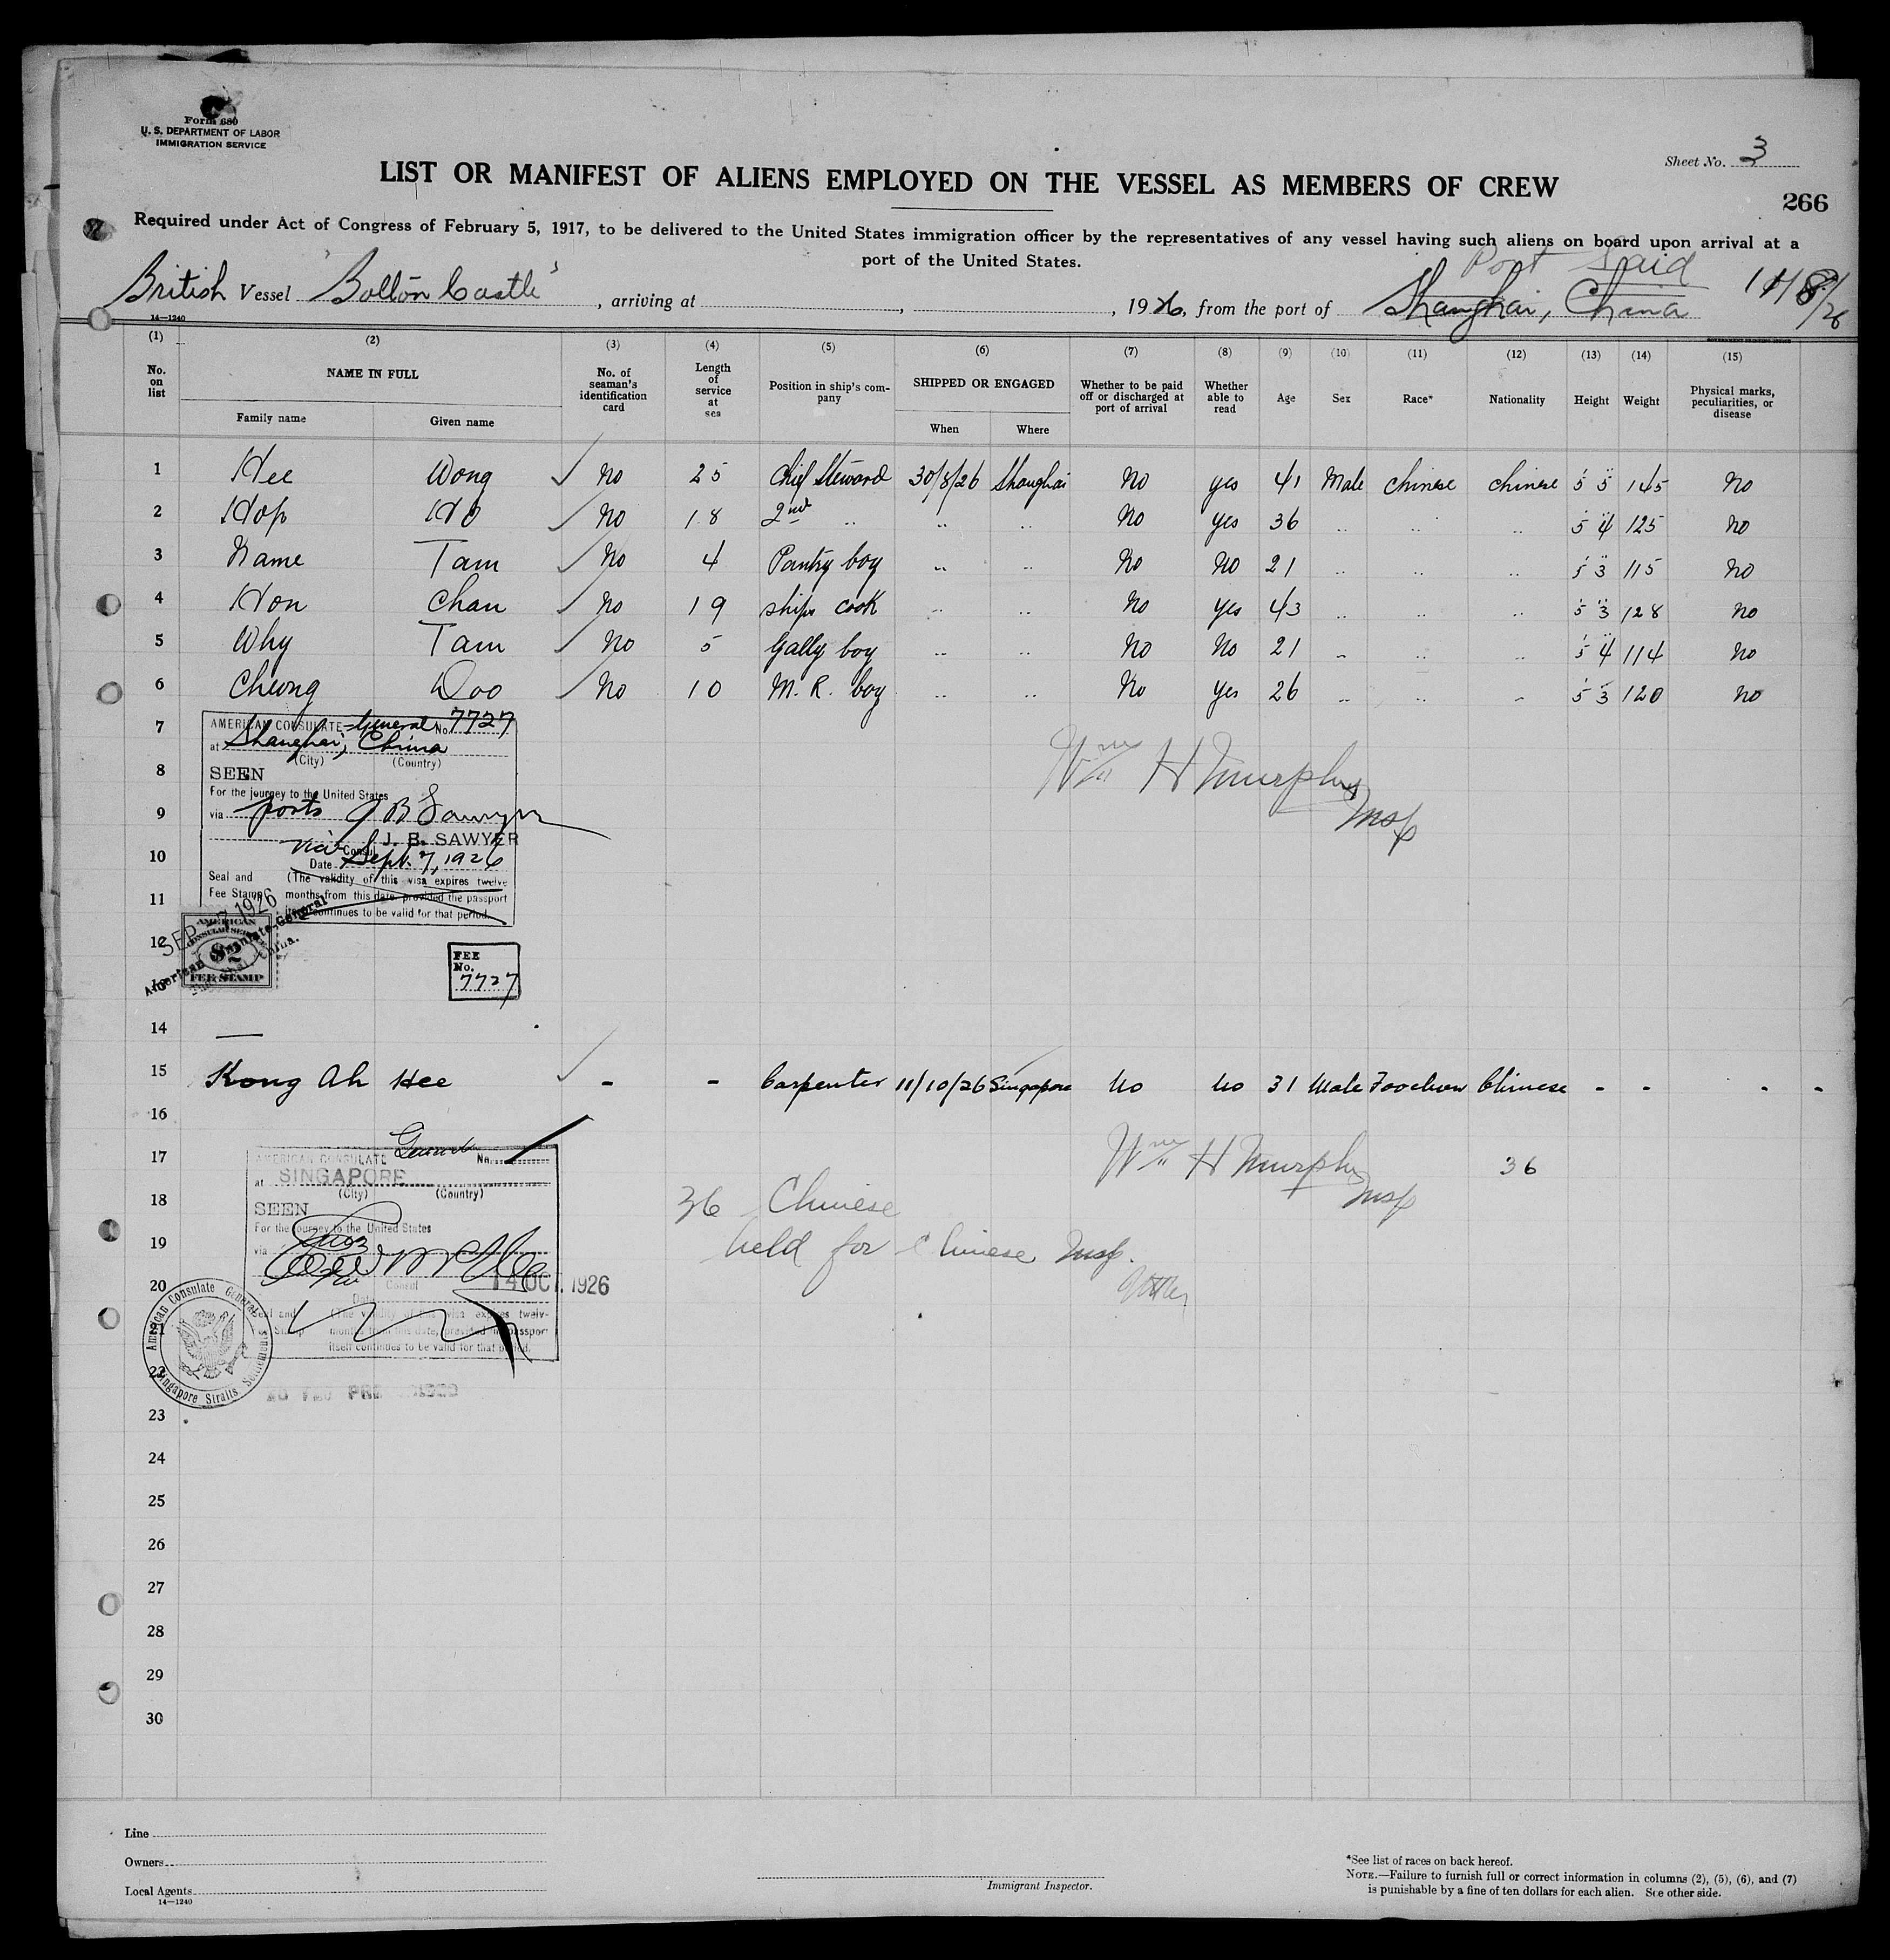 Form 680
U. S. DEPARTMENT OF LABOR
IMMIGRATION SERVICE
Sheet No. 3
LIST OR MANIFEST OF ALIENS EMPLOYED ON THE VESSEL AS MEMBERS OF CREW
266
Required under Act of Congress of February 5, 1917, to be delivered to the United States immigration officer by the representatives of any vessel having such aliens on board upon arrival at a
port of the United States.
Port Said
British Vessel "Bolton Castle", arriving at , , 1926, from the port of Shanghai, China 11/8/26
14—1240
(1) (2) (3) (4) (5) (6) (7) (8) (9) (10) (11) (12) (13) (14) (15)
No. on list NAME IN FULL No. of seaman's identification card Length of service at sea Position in ship's company SHIPPED OR ENGAGED Whether to be paid off or discharged at port of arrival Whether able to read Age Sex Race* Nationality Height Weight Physical marks, peculiarities, or disease
Family name Given name When Where
1 Hee Wong ✓ No 25 Chief Steward 30/8/26 Shanghai No yes 41 Male Chinese Chinese 5' 5" 145 No
2 Hop Ho ✓ No 18 2nd " " " No yes 36 " " " 5' 4" 125 No
3 Name Tam ✓ No 4 Pantry boy " " No No 21 " " " 5' 3" 115 No
4 Hon Chan ✓ No 19 ships cook " " No yes 43 " " " 5' 3" 128 No
5 Why Tam ✓ No 5 Gally boy " " No No 21 " " " 5' 4" 114 No
6 Cheong Doo ✓ No 10 M. R. boy " " No yes 26 " " " 5' 3" 120 No
7
AMERICAN CONSULATE-General No. 7727
at Shanghai, China
(City) (Country)
8
SEEN
For the journey to the United States
Wm H Murphy
Insp
9
via ports J B Sawyer
J. B. SAWYER
Vice Consul
10
Date Sept. 7, 1926
Seal and Fee Stamp
(The validity of this visa expires twelve
11
months from this date, provided the passport
itself continues to be valid for that period.
SEP 7 1926
American Consulate-General
12
AMERICAN
CONSULAR SERVICE
$2
FEE STAMP
13
FEE
No.
7727
14
15 Kong Ah Hee ✓ - - Carpenter 11/10/26 Singapore No No 31 Male Foochow Chinese - - - -
16
17
AMERICAN CONSULATE General No.
Wm H Murphy
Insp
36
at SINGAPORE
(City) (Country)
18
SEEN
36 Chinese
For the journey to the United States
19
via
held for Chinese Insp.
20
Consul
14 OCT. 1926
Date
21
Seal and
Stamp
(The validity of this visa expires twelve
months from this date, provided the passport
itself continues to be valid for that period.
American Consulate General
Singapore Straits Settlements
22
NO FEE PRESCRIBED
23
24
25
26
27
28
29
30
Line
Owners
Local Agents
14—1240
Immigrant Inspector.
*See list of races on back hereof.
NOTE.—Failure to furnish full or correct information in columns (2), (5), (6), and (7)
is punishable by a fine of ten dollars for each alien. See other side.